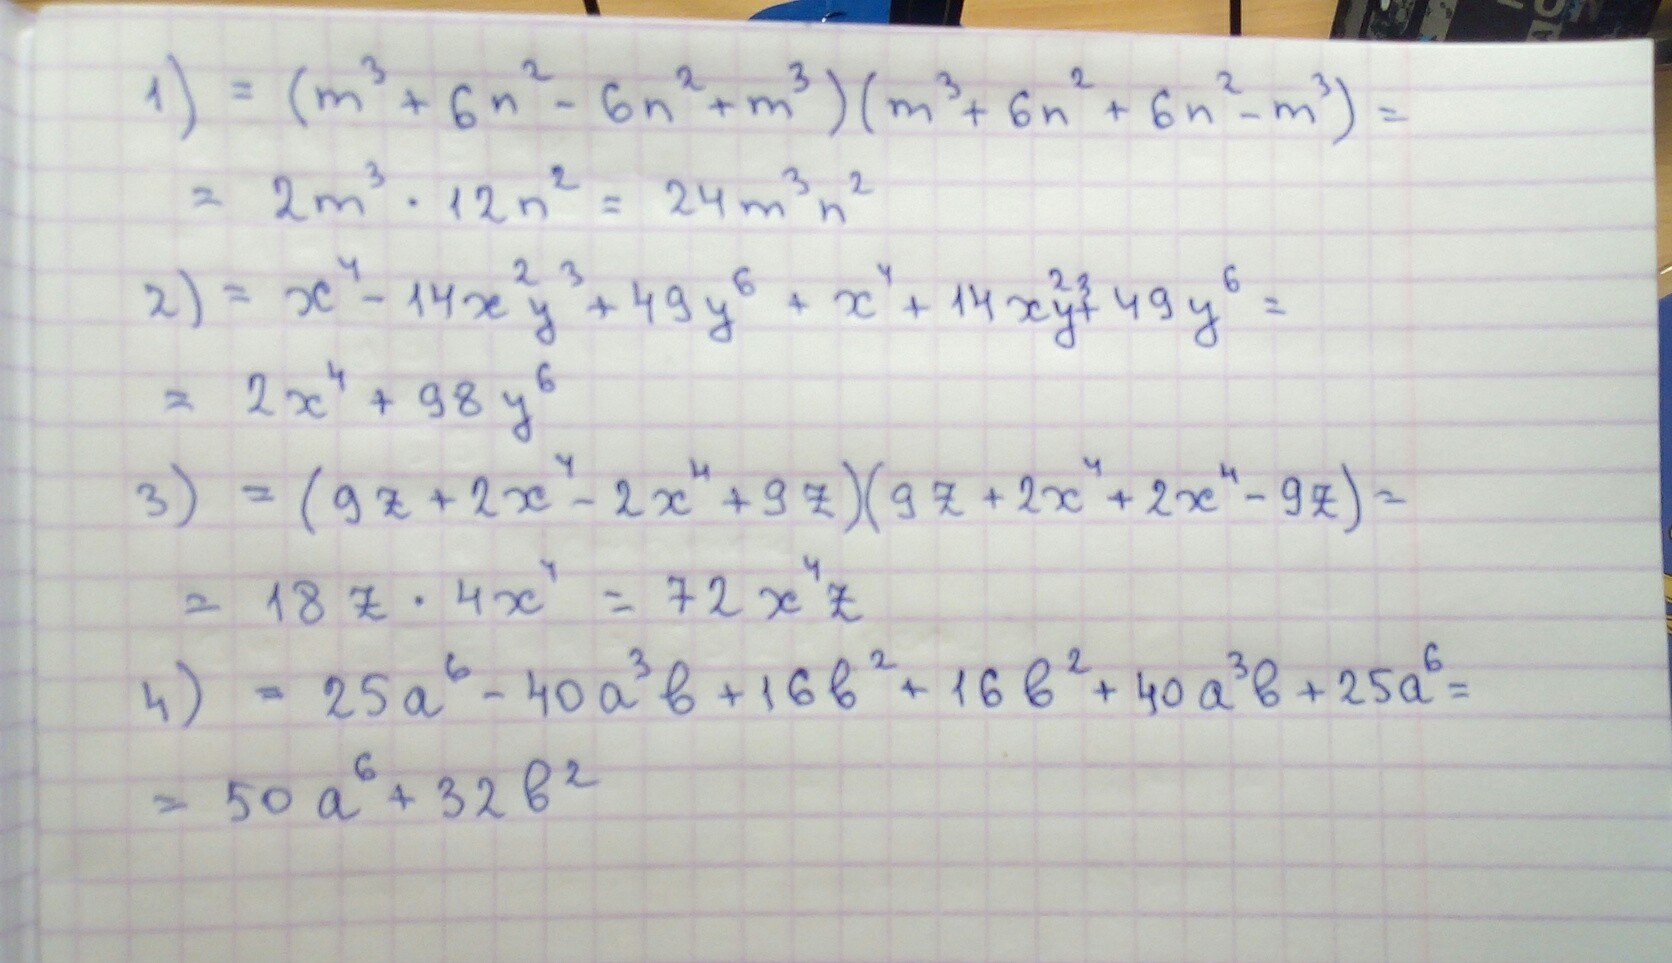 1) = (m³ + 6n² - 6n² + m³)(m³ + 6n² + 6n² - m³) =
= 2m³ · 12n² = 24m³n²
2) = x⁴ - 14x²y³ + 49y⁶ + x⁴ + 14x²y³ + 49y⁶ =
= 2x⁴ + 98y⁶
3) = (9z + 2x⁴ - 2x⁴ + 9z)(9z + 2x⁴ + 2x⁴ - 9z) =
= 18z · 4x⁴ = 72x⁴z
4) = 25a⁶ - 40a³b + 16b² + 16b² + 40a³b + 25a⁶ =
= 50a⁶ + 32b²